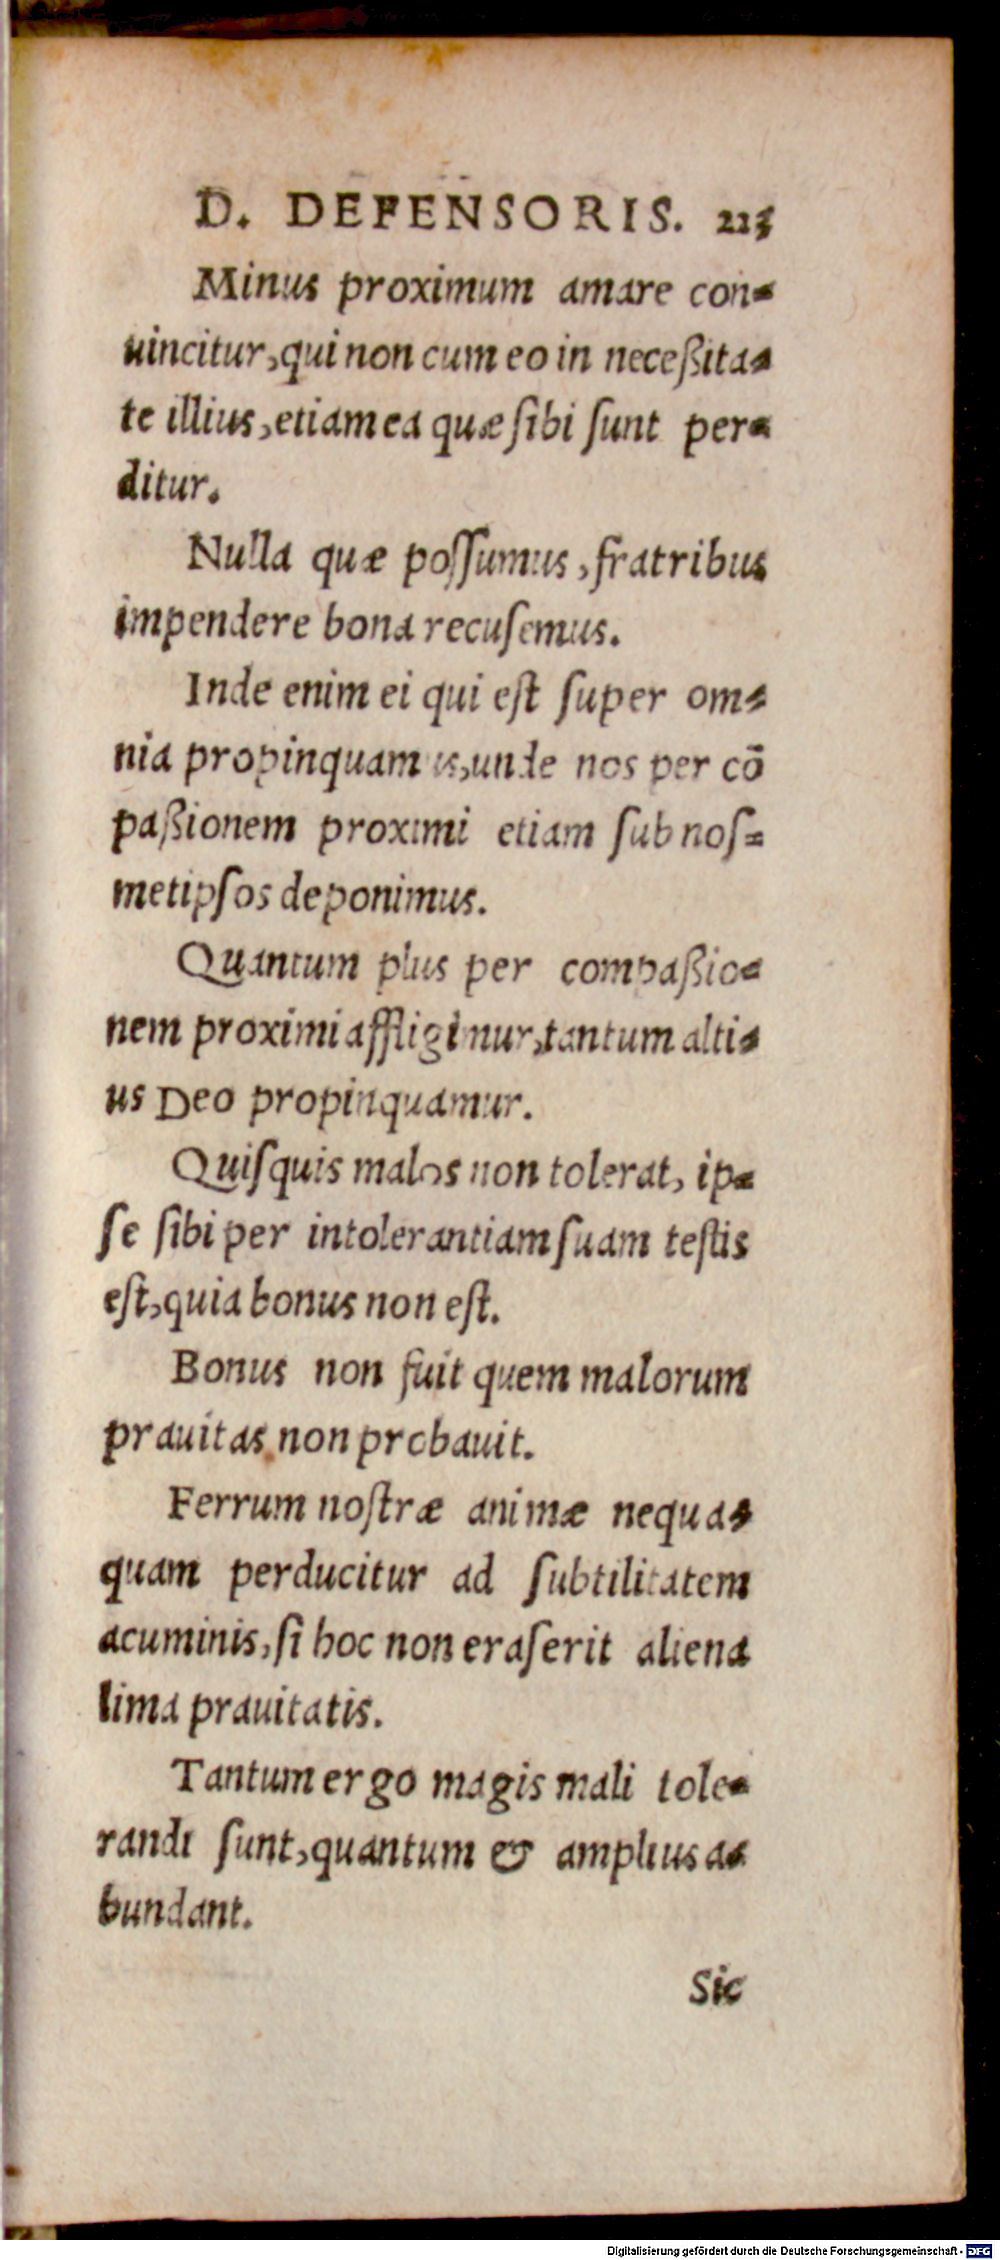 D. DEFENSORIS. 213
Minus proximum amare con-
uincitur, qui non cum eo in neceßita-
te illius, etiam ea quæ sibi sunt per-
ditur.
Nulla quæ possumus, fratribus
impendere bona recusemus.
Inde enim ei qui est super om-
nia propinquamus, unde nos per cō
paßionem proximi etiam sub nos-
metipsos deponimus.
Quantum plus per compaßio-
nem proximi affligimur, tantum alti-
us Deo propinquamur.
Quisquis malos non tolerat, ip-
se sibi per intolerantiam suam testis
est, quia bonus non est.
Bonus non fuit quem malorum
prauitas non probauit.
Ferrum nostræ animæ nequa-
quam perducitur ad subtilitatem
acuminis, si hoc non eraserit aliena
lima prauitatis.
Tantum ergo magis mali tole-
randi sunt, quantum & amplius a-
bundant.
Sic
Digitalisierung gefördert durch die Deutsche Forschungsgemeinschaft - DFG